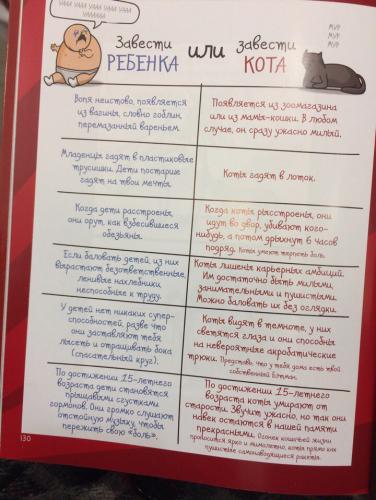 УАА УАА УАА УАА УАА
УААААА
МУР
МУР
МУР
Завести
РЕБЕНКА
или
завести
КОТА
Вопя неистово, появляется
из вагины, словно гоблин,
перемазанный вареньем.
Появляется из зоомагазина
или из мамы-кошки. В любом
случае, он сразу ужасно милый.
Младенцы гадят в пластиковые
трусишки. Дети постарше
гадят на твои мечты.
Коты гадят в лоток.
Когда дети расстроены,
они орут, как взбесившиеся
обезьяны.
Когда коты расстроены, они
идут во двор, убивают кого-
нибудь, а потом дрыхнут 6 часов
подряд. Коты умеют терпеть боль.
Если баловать детей, из них
вырастают безответственные,
ленивые наследники,
неспособные к труду.
Коты лишены карьерных амбиций.
Им достаточно быть милыми,
занимательными и пушистыми.
Можно баловать их без оглядки.
У детей нет никаких супер-
способностей, разве что
они заставляют тебя
лысеть и отращивать бока
(спасательный круг).
Коты видят в темноте, у них
светятся глаза и они способны
на невероятные акробатические
трюки. Представь, что у тебя дома есть твой
собственный Бэтмен.
По достижении 15-летнего
возраста дети становятся
прыщавыми сгустками
гормонов. Они громко слушают
отстойную музыку, чтобы
пережить свою «боль».
По достижении 15-летнего
возраста коты умирают от
старости. Звучит ужасно, но так они
навек остаются в нашей памяти
прекрасными. Огонек кошачьей жизни
проносится ярко и мимолетно, коты прямо как
пушистые самонаводящиеся ракеты.
130